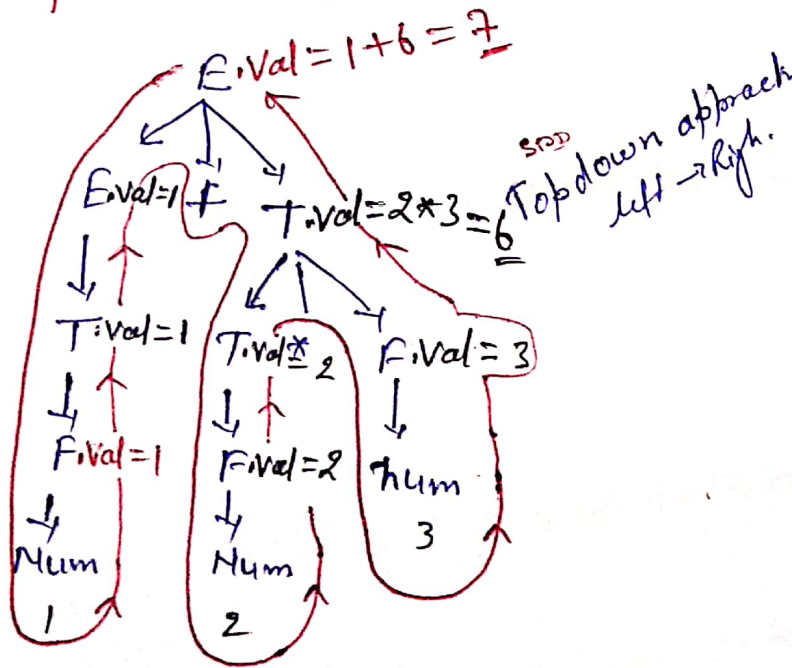 E.val = 1+6 = 7
SDD
Topdown approach
left → Righ.
E.val=1 + T.val=2*3=6
T.val=1 T.val * 2 F.val = 3
F.val=1 F.val=2 num
3
Num Num
1 2